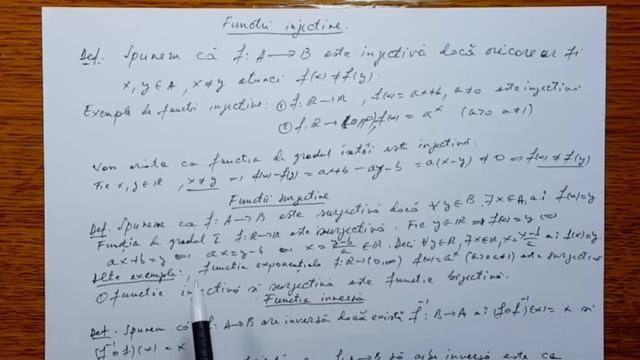 Funcții injective.
Def. Spunem că f: A → B este injectivă dacă oricare ar fi
x, y ∈ A, x ≠ y atunci f(x) ≠ f(y).
Exemple de funcții injective: ① f: R → R, f(x) = ax+b, a≠0 este injectivă
② f: R → (0,∞), f(x) = a^x (a>0 a≠1)
Vom arăta că funcția de gradul întâi este injectivă:
Fie x, y ∈ R, x≠y ⇒ f(x) − f(y) = ax+b − ay − b = a(x−y) ≠ 0 ⇒ f(x) ≠ f(y)
Funcții surjective
Def. Spunem că f: A → B este surjectivă dacă ∀ y ∈ B, ∃ x ∈ A, a.i f(x) = y
Funcția de gradul I f: R → R este surjectivă. Fie y ∈ R ⇒ f(x) = y ⇔
ax+b = y ⇔ ax = y−b ⇔ x = (y−b)/a ∈ R. Deci ∀ y ∈ R, ∃ x ∈ R, x = (y−b)/a a.i f(x) = y
Alte exemple: funcția exponențială f: R → (0,∞) f(x) = a^x (a>0 a≠1) este surjectivă
O funcție injectivă și surjectivă este funcție bijectivă.
Funcția inversă
Def. Spunem că f: A → B are inversă dacă există f^-1: B → A a.i (f∘f^-1)(x) = x și
(f^-1∘f)(x) = x